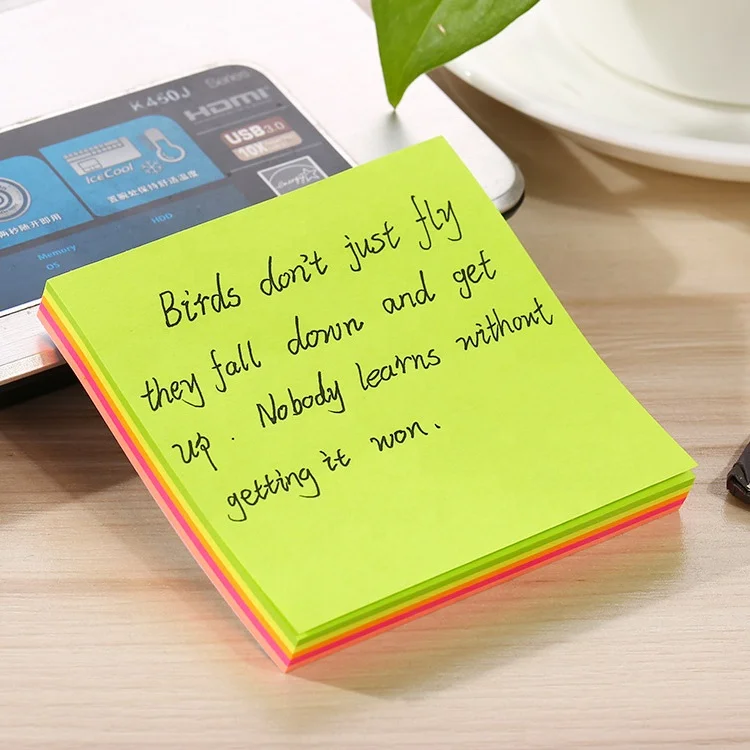 K450J Series
HDMI
USB3.0
10X
IceCool
置腕处保持舒适温度
两秒随开即用
HDD
Memory
OS
Birds don't just fly
they fall down and get
up. Nobody learns without
getting it won.